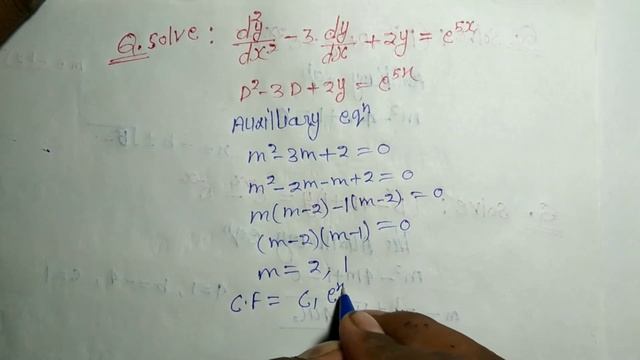 Q. Solve : d²y/dx² - 3. dy/dx + 2y = e^5x
D² - 3D + 2y = e^5x
Auxilliary eqⁿ
m² - 3m + 2 = 0
m² - 2m - m + 2 = 0
m(m-2) - 1(m-2) = 0
(m-2)(m-1) = 0
m = 2, 1
C.F = C₁ e^x